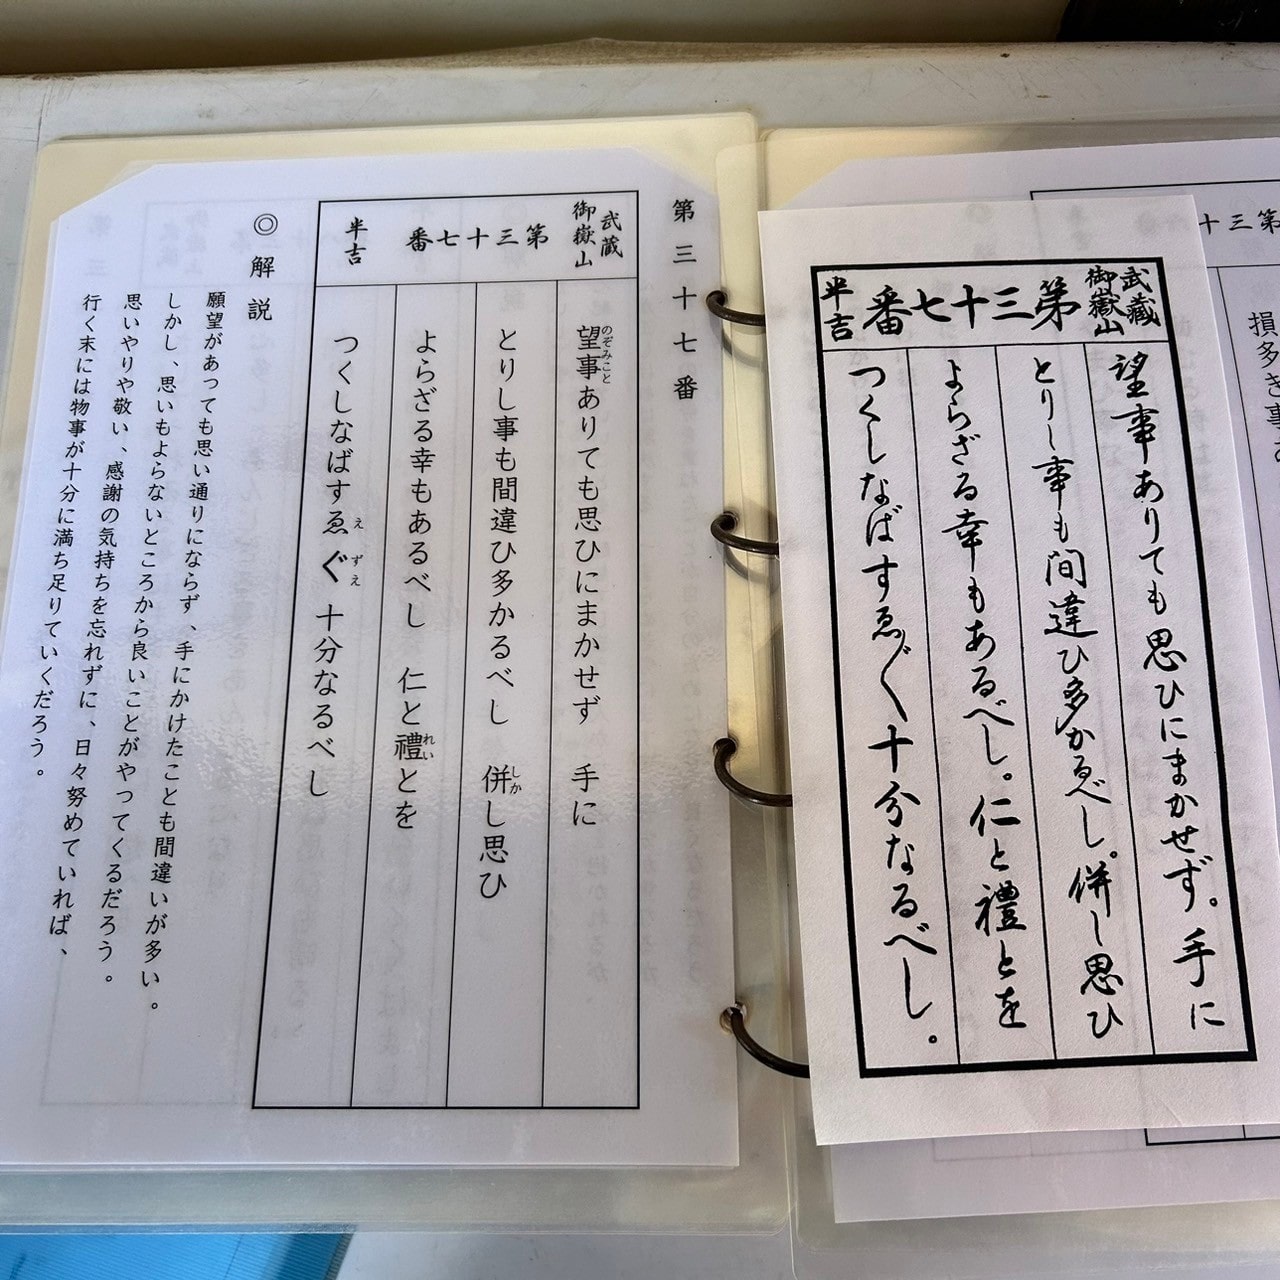 第三十七番
武蔵
御嶽山
第三十七番
半吉
望事ありても思ひにまかせず　手に
のぞみこと
とりし事も間違ひ多かるべし　併し思ひ
しか
よらざる幸もあるべし　仁と禮とを
れい
つくしなばすゑ〲十分なるべし
え　ずえ
◎解説
願望があっても思い通りにならず、手にかけたことも間違いが多い。
しかし、思いもよらないところから良いことがやってくるだろう。
思いやりや敬い、感謝の気持ちを忘れずに、日々努めていれば、
行く末には物事が十分に満ち足りていくだろう。
武蔵
御嶽山
第三十七番
半吉
望事ありても思ひにまかせず。手に
とりし事も間違ひ多かるべし。併し思ひ
よらざる幸もあるべし。仁と禮とを
つくしなばすゑ〲十分なるべし。
第三十
損多き事あ